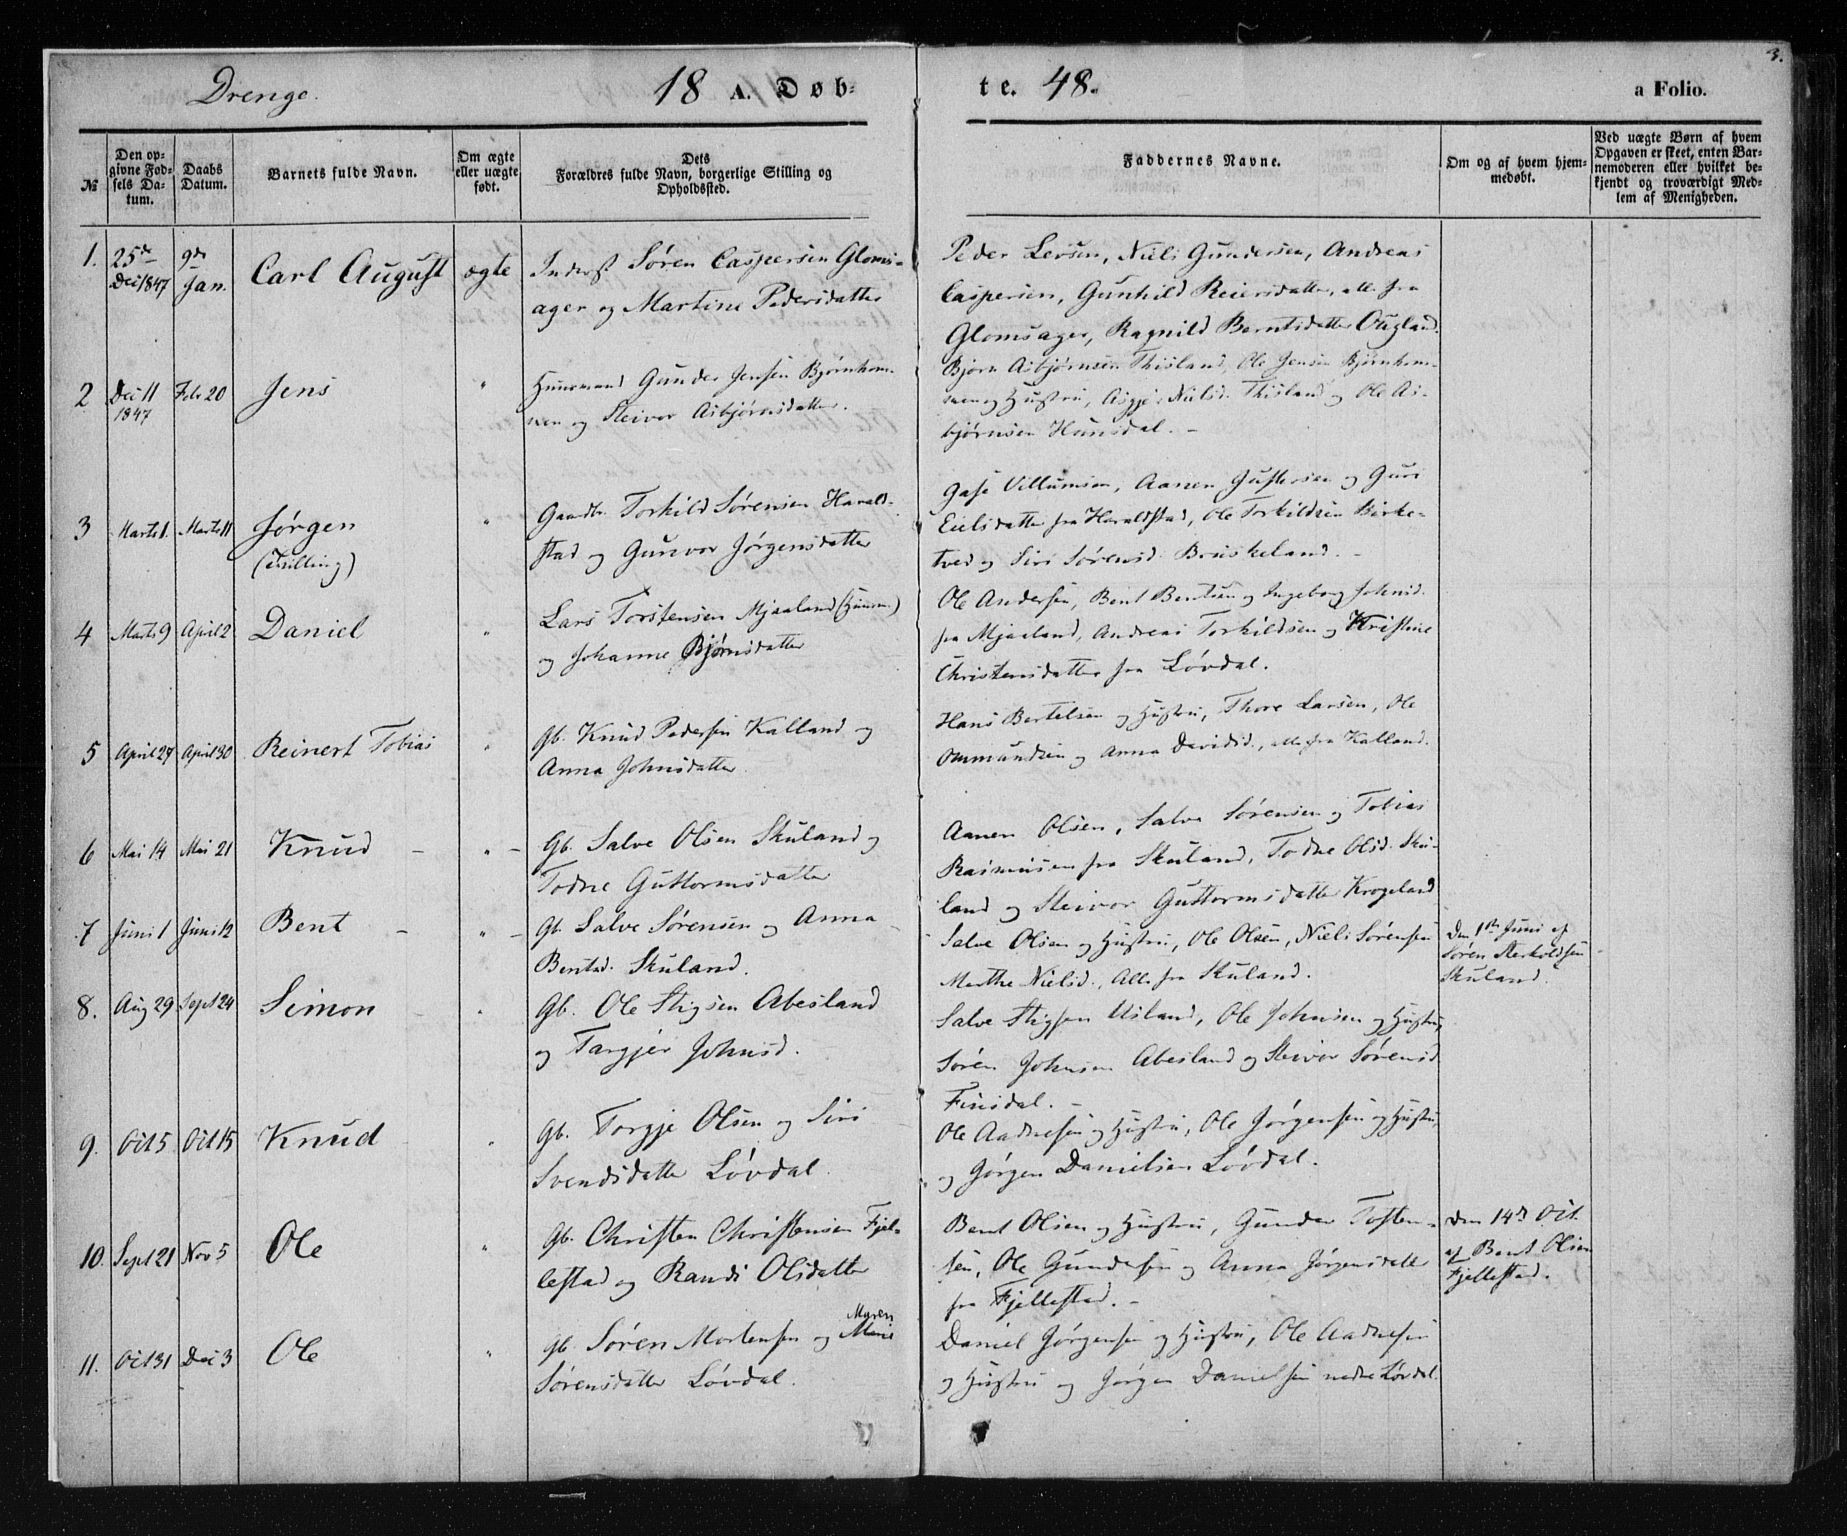 3.
Drenge. 18 A. Døb- te. 48. a Folio.
№
Den op-
givne Fød-
sels Da-
tum.
Daabs
Datum.
Barnets fulde Navn.
Om ægte
eller uægte
født.
Dets
Forældres fulde Navn, borgerlige Stilling og
Opholdssted.
Faddernes Navne.
Om og af hvem hjem-
medøbt.
Ved uægte Børn af hvem
Opgaven er skeet, enten Bar-
nemoderen eller hvilket be-
kjendt og troværdigt Med-
lem af Menigheden.
1.
25de
Dec 1847
9de
Jan.
Carl August
ægte
Inderst Søren Caspersen Gloms-
ager og Martine Pedersdatter
Peder Levsen, Niels Gundersen, Andreas
Caspersen, Gunhild Reiersdatter, alle fra
Glomsager, Ragnild Berntsdatter Ougland.
2
Dec 11
1847
Feb 20
Jens
"
Huusmand Gunder Jensen Bjørnhom-
men og Steivor Asbjørnsdatter.
Bjørn Asbjørnsen Thisland, Ole Jensen Bjørnhom-
men og Hustru, Nielsd. Thisland og Ole As-
bjørnsen Hunsdal. -
3
Marts 1.
Marts 11
Jørgen
(Tvilling)
"
Gaardbr. Torkild Sørensen Harald-
stad og Gunvor Jørgensdatter
Villumsen, Aanen og Guri
Eielsdatter fra Haraldstad, Ole Torkildsen Birke-
tved og Siri Sørensd. Bruskeland. -
4
Marts 9
April 2
Daniel
"
Lars Torstensen Mjaaland (Huusm.)
og Johanne Bjørnsdatter
Ole Andersen, Bent Bentsen og Ingeborg Johnsd.
fra Mjaaland, Andreas Torkildsen og Kristine
Christensdatter fra Løvdal.
5
April 27
April 30
Reinert Tobias
"
Gb. Knud Pedersen Kalland og
Anna Johnsdatter
Hans Bertelsen og Hustru, Thore Larsen, Ole
Ommundsen og Anna Davidsd., alle fra Kalland.
6
Mai 14
Mai 21
Knud -
" -
Gb. Salve Olsen Skuland og
Todne Guttormsdatter
Aanen Olsen, Salve Sørensen og Tobias
Rasmussen fra Skuland, Todne Olsd. Sku-
land og Steivor Guttormsdatter Krogeland
7
Juni 1
Juni 12
Bent -
" -
Gb. Salve Sørensen og Anna
Bentsd. Skuland.
Salve Olsen og Hustru, Ole Olsen, Niels Sørensen
Marthe Nielsd., Alle fra Skuland.
Den 1ste Juni af
Søren Sterkoldsen
Skuland.
8.
Aug 29
Sept 24
Simon -
"
Gb. Ole Stigsen Abesland
og Targjer Johnsd.
Salve Stigsen Usland, Ole Johnsen og Hustru,
Søren Johnsen Abesland og Steivor Sørensd
Finsdal. -
9.
Oct 5
Oct 15
Knud
"
Gb. Torgje Olsen og Siri
Svendsdatter Løvdal.
Ole Aadnesen og Hustru, Ole Jørgensen og Hustru,
og Jørgen Danielsen Løvdal.
10.
Sept 21
Nov 5
Ole
"
Gb. Christen Christensen Fjel-
lestad og Randi Olsdatter
Bent Olsen og Hustru, Gunder Tosten-
sen, Ole Gundersen og Anna Jørgensdatter
fra Fjellestad. -
Den 14de Oct.
af Bent Olsen
Fjellestad.
11.
Oct 31
Dec 3
Ole
"
Maren
Gb. Søren Mortensen og Marie
Sørensdatter Løvdal.
Daniel Jørgensen og Hustru, Ole Aadnesen
og Hustru og Jørgen Danielsen nedre Løvdal